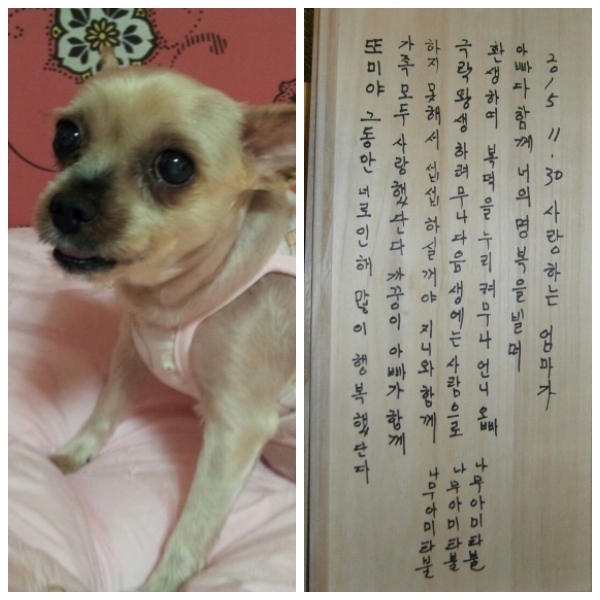 또미야 그동안 너로인해 많이 행복했단다
가족모두 사랑했단다 까꿍이 아빠가 함께
하지 못해서 섭섭 하실꺼야 지니와 함께
극락왕생 하려무나 다음생에는 사람으로
환생하여 복덕을 누리려무나 언니 오빠
아빠다 함께 너의 명복을 빌며
2015 11.30 사랑하는 엄마가
나무아미타불
나무아미타불
나무아미타불